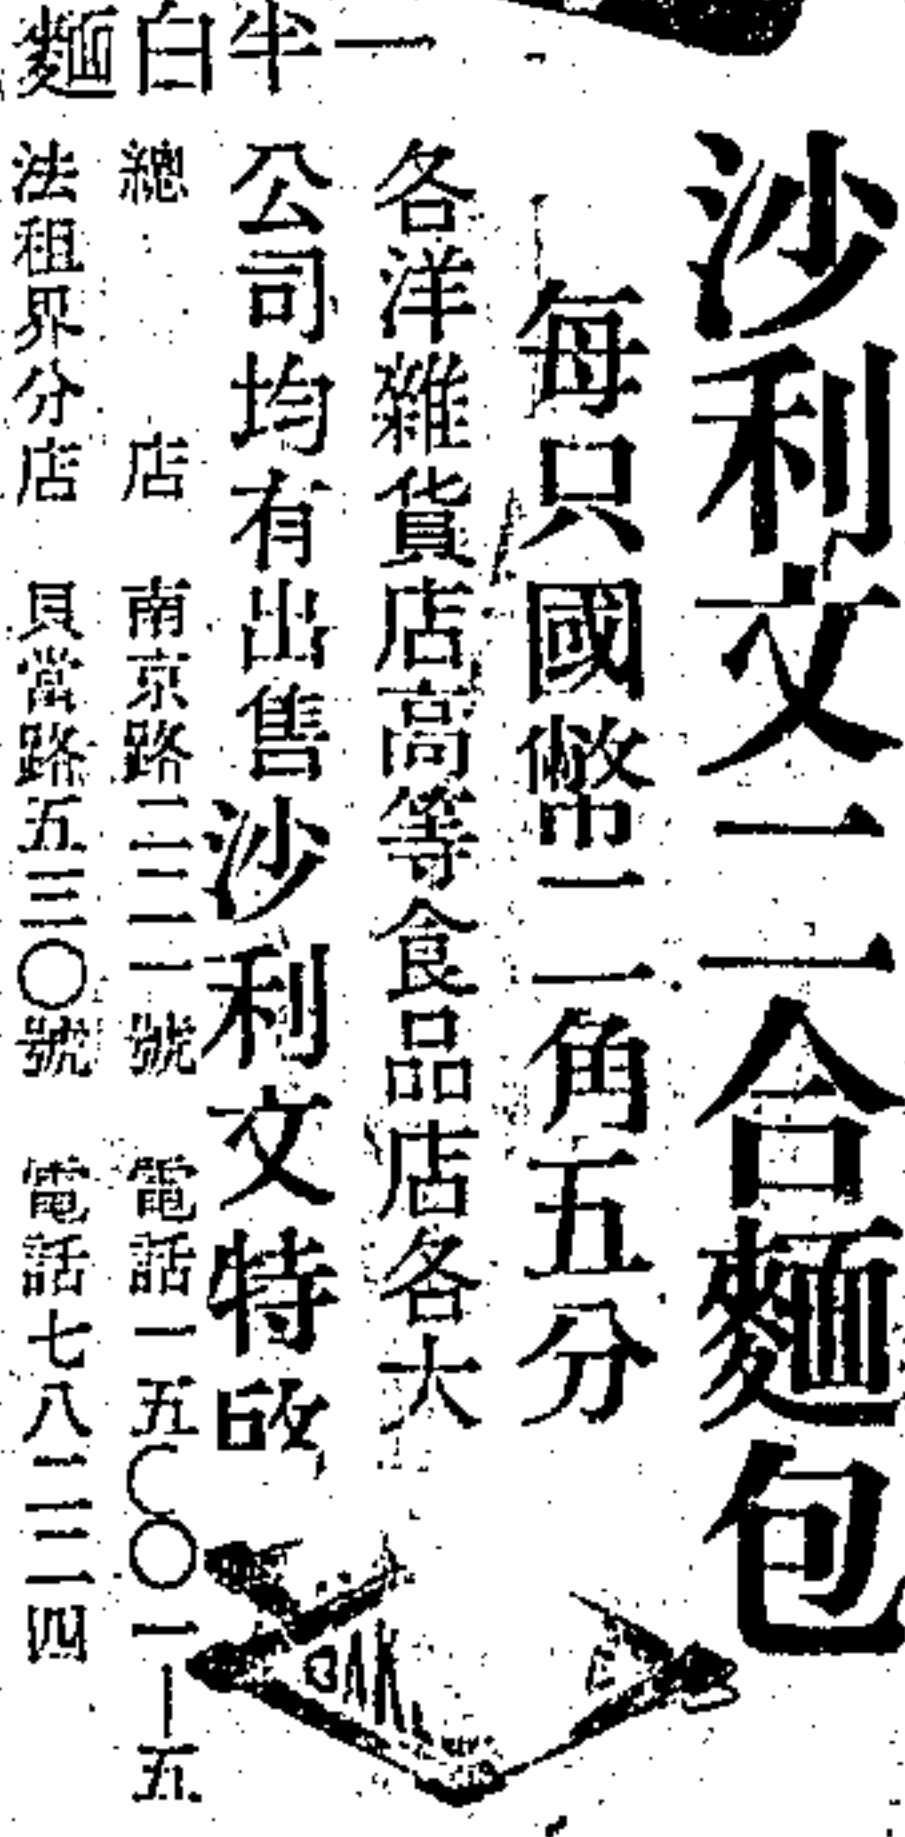 一半白麵
沙利文二合麵包
每只國幣二角五分
各洋雜貨店高等食品店各大
公司均有出售 沙利文特啟
總店 南京路二二一號 電話一五〇〇一—五
法租界分店 貝當路五三〇號 電話七八二二四